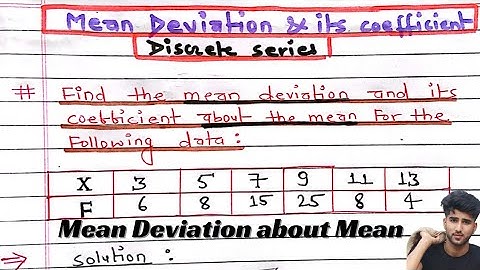 Mean Deviation & its coefficient
Discrete series
# Find the mean deviation and its
coefficient about the mean For the
Following data:
X 3 5 7 9 11 13
F 6 8 15 25 8 4
Mean Deviation about Mean
→ Solution :